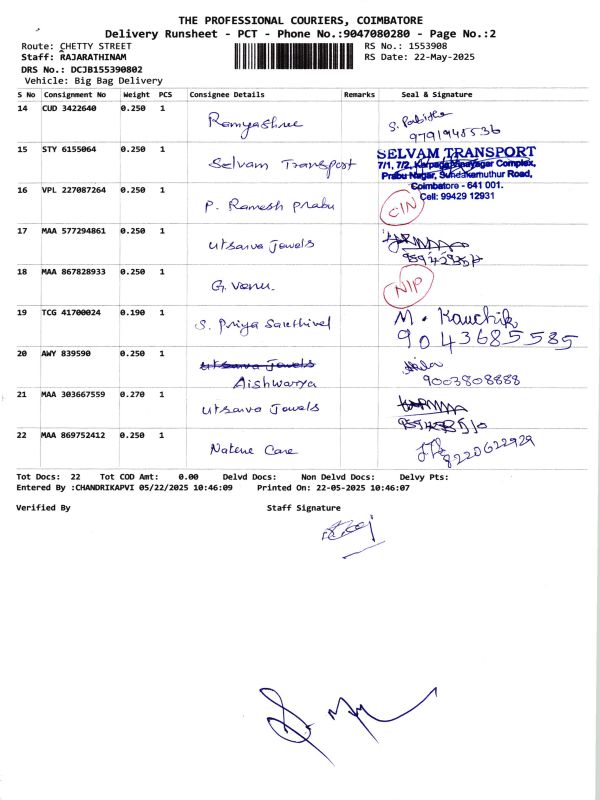 THE PROFESSIONAL COURIERS, COIMBATORE
Delivery Runsheet - PCT - Phone No.:9047080280 - Page No.:2
Route: CHETTY STREET
RS No.: 1553908
Staff: RAJARATHINAM
RS Date: 22-May-2025
DRS No.: DCJB155390802
Vehicle: Big Bag Delivery
S No Consignment No Weight PCS Consignee Details Remarks Seal & Signature
14 CUD 3422640 0.250 1 Ramyashree
9791948536
15 STY 6155064 0.250 1 Selvam Transport
SELVAM TRANSPORT
7/1, 7/2, Karpaga Vinayagar Complex,
Prabu Nagar, Sundakamuthur Road,
Coimbatore - 641 001.
Cell: 99429 12931
16 VPL 227087264 0.250 1 P. Ramesh Prabu CIN
17 MAA 577294861 0.250 1 Utsarva Jewels
18 MAA 867828933 0.250 1 G. Venu. NIP
19 TCG 41700024 0.190 1 S. Priya Sakthivel M. Kauchik
9043685585
20 AWY 839590 0.250 1 Utsarva Jewels
Aishwarya 9003808888
21 MAA 303667559 0.270 1 Utsarva Jewels
22 MAA 869752412 0.250 1 Natene Care 8220622929
Tot Docs: 22 Tot COD Amt: 0.00 Delvd Docs: Non Delvd Docs: Delvy Pts:
Entered By :CHANDRIKAPVI 05/22/2025 10:46:09 Printed On: 22-05-2025 10:46:07
Verified By Staff Signature